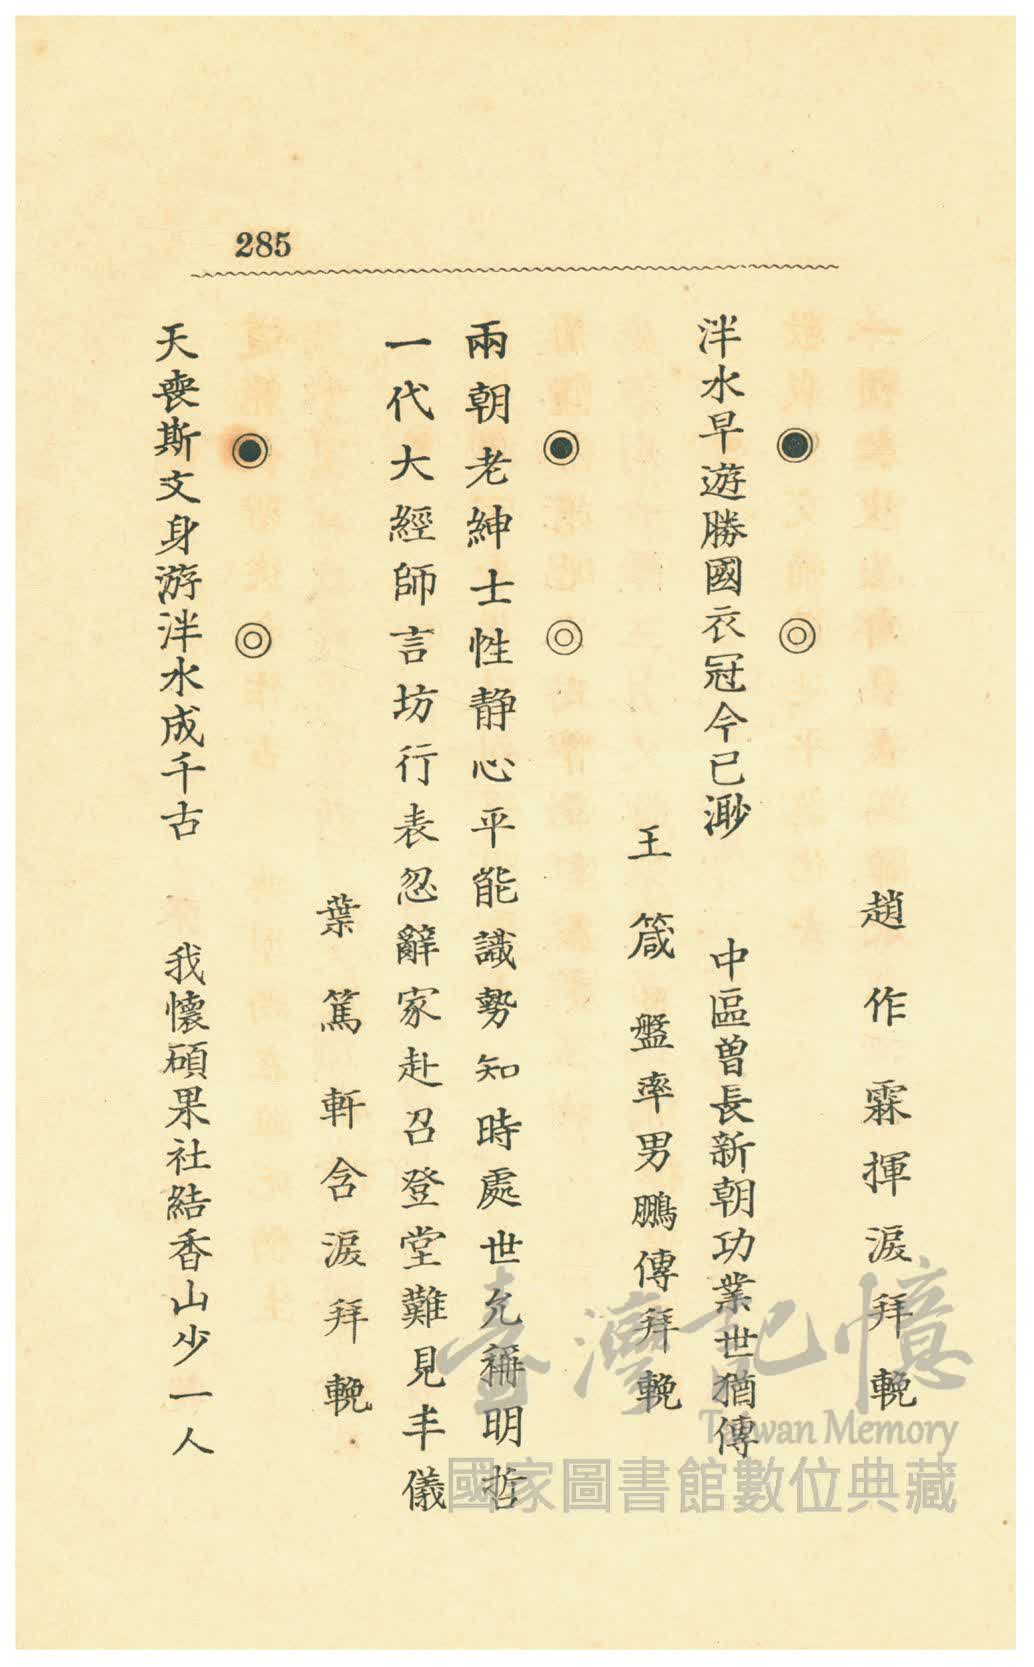 285
趙作霖揮淚拜輓
泮水早遊勝國衣冠今已渺　中區曾長新朝功業世猶傳
王箴盤率男鵬傳拜輓
兩朝老紳士性静心平能識勢知時處世允稱明哲
一代大經師言坊行表忽辭家赴召登堂難見丰儀
葉篤軒含淚拜輓
天喪斯文身游泮水成千古　我懷碩果社結香山少一人
臺灣記憶
Taiwan Memory
國家圖書館數位典藏